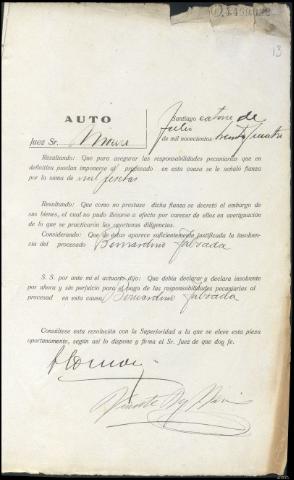 13
AUTO
Santiago catorce de
Julio
Juez Sr. Moure
de mil novecientos treinta y cuatro
Resultando: Que para asegurar las responsabilidades pecuniarias que en
definitiva puedan imponerse al procesado en esta causa se le señaló fianza
por la suma de mil pesetas
Resultando: Que como no prestase dicha fianza se decretó el embargo de
sus bienes, el cual no pudo llevarse a efecto por carecer de ellos en averiguación
de lo que se practicaron las oportunas diligencias.
Considerando: Que de éstas aparece suficientemente justificada la insolvencia
del procesado Bernardino Taboada
S. S. por ante mí el actuario dijo: Que debía declarar y declara insolvente
por ahora y sin perjuicio para el pago de las responsabilidades pecuniarias al
procesad en esta causa Bernardino Taboada
Consúltese esta resolución con la Superioridad a la que se eleve esta pieza
oportunamente, según así lo dispone y firma el Sr. Juez de que doy fe.
Vicente